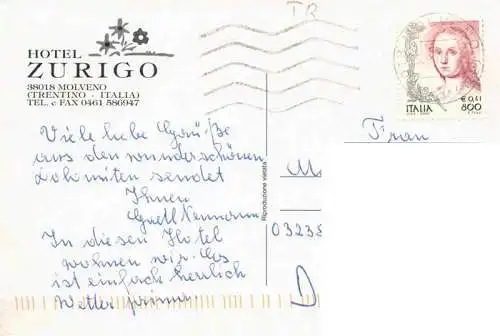 HOTEL
ZURIGO
38018 MOLVENO
(TRENTINO - ITALIA)
TEL. e FAX 0461 586947
TR
€ 0,41
ITALIA 800
Frau
Viele liebe Grüße
aus den wunderschönen
Dolomiten sendet
Ihnen
In diesen Hotel
wohnen wir. Es
ist einfach herrlich
Wetter prima.
Riproduzione vietata
M
03238
D